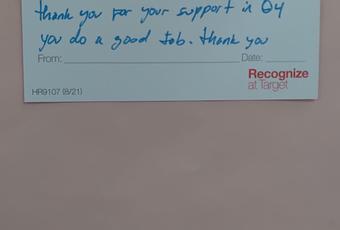 thank you for your support in Q4
you do a good job. thank you
From: Date:
Recognize
at Target
HR9107 (8/21)